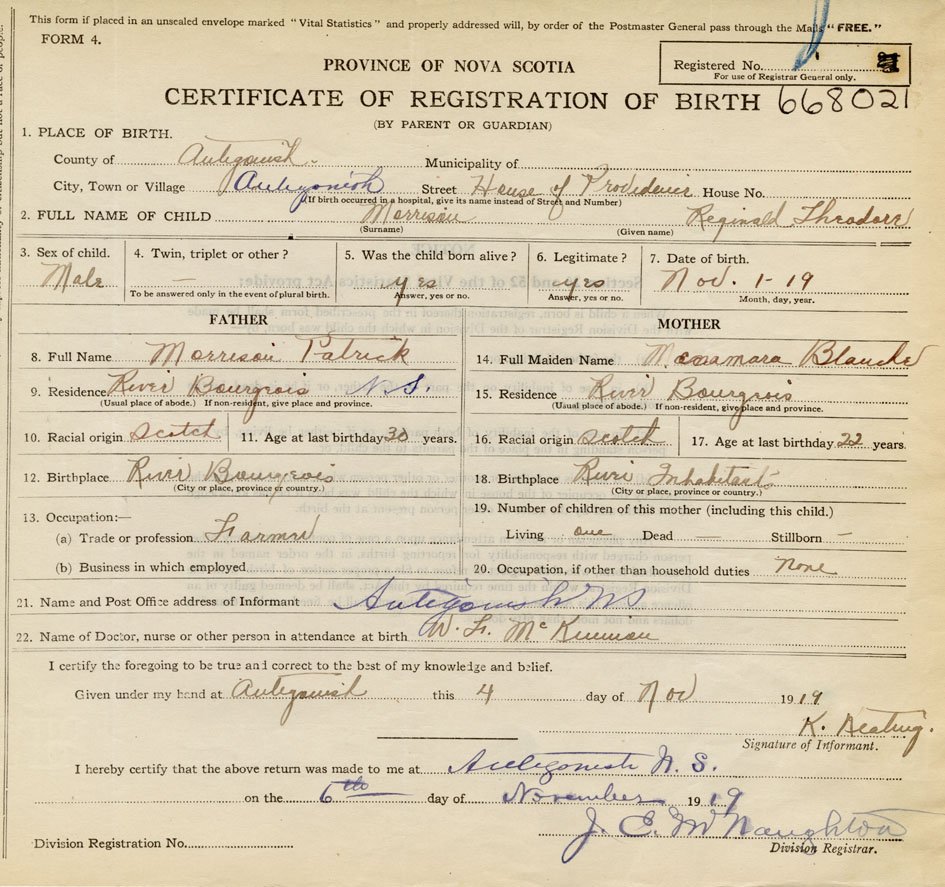 This form if placed in an unsealed envelope marked "Vital Statistics" and properly addressed will, by order of the Postmaster General pass through the Mails "FREE."
FORM 4.
Registered No.
For use of Registrar General only.
PROVINCE OF NOVA SCOTIA
CERTIFICATE OF REGISTRATION OF BIRTH 668021
(BY PARENT OR GUARDIAN)
1. PLACE OF BIRTH.
County of Antigonish. Municipality of
City, Town or Village Antigonish Street House of Providence House No.
(If birth occurred in a hospital, give its name instead of Street and Number)
2. FULL NAME OF CHILD Morrison Reginald Theodore
(Surname) (Given name)
3. Sex of child. 4. Twin, triplet or other? 5. Was the child born alive? 6. Legitimate? 7. Date of birth.
Male — yes yes Nov. 1-19
To be answered only in the event of plural birth. Answer, yes or no. Answer, yes or no. Month, day, year.
FATHER MOTHER
8. Full Name Morrison Patrick 14. Full Maiden Name Macnamara Blanche
9. Residence River Bourgois N.S. 15. Residence River Bourgois
(Usual place of abode.) If non-resident, give place and province. (Usual place of abode.) If non-resident, give place and province.
10. Racial origin Scotch 11. Age at last birthday 30 years. 16. Racial origin Scotch 17. Age at last birthday 22 years.
12. Birthplace River Bourgeois 18. Birthplace River Inhabitants
(City or place, province or country.) (City or place, province or country.)
13. Occupation:— 19. Number of children of this mother (including this child.)
(a) Trade or profession Farmer Living one Dead — Stillborn -
(b) Business in which employed 20. Occupation, if other than household duties None
21. Name and Post Office address of Informant Antigonish NS
22. Name of Doctor, nurse or other person in attendance at birth W. F. McKinnon
I certify the foregoing to be true and correct to the best of my knowledge and belief.
Given under my hand at Antigonish this 4 day of Nov 1919
K. Beating.
Signature of Informant.
I hereby certify that the above return was made to me at Antigonish N. S.
on the 6th day of November 1919
J. E. McNaughton
Division Registration No. Division Registrar.